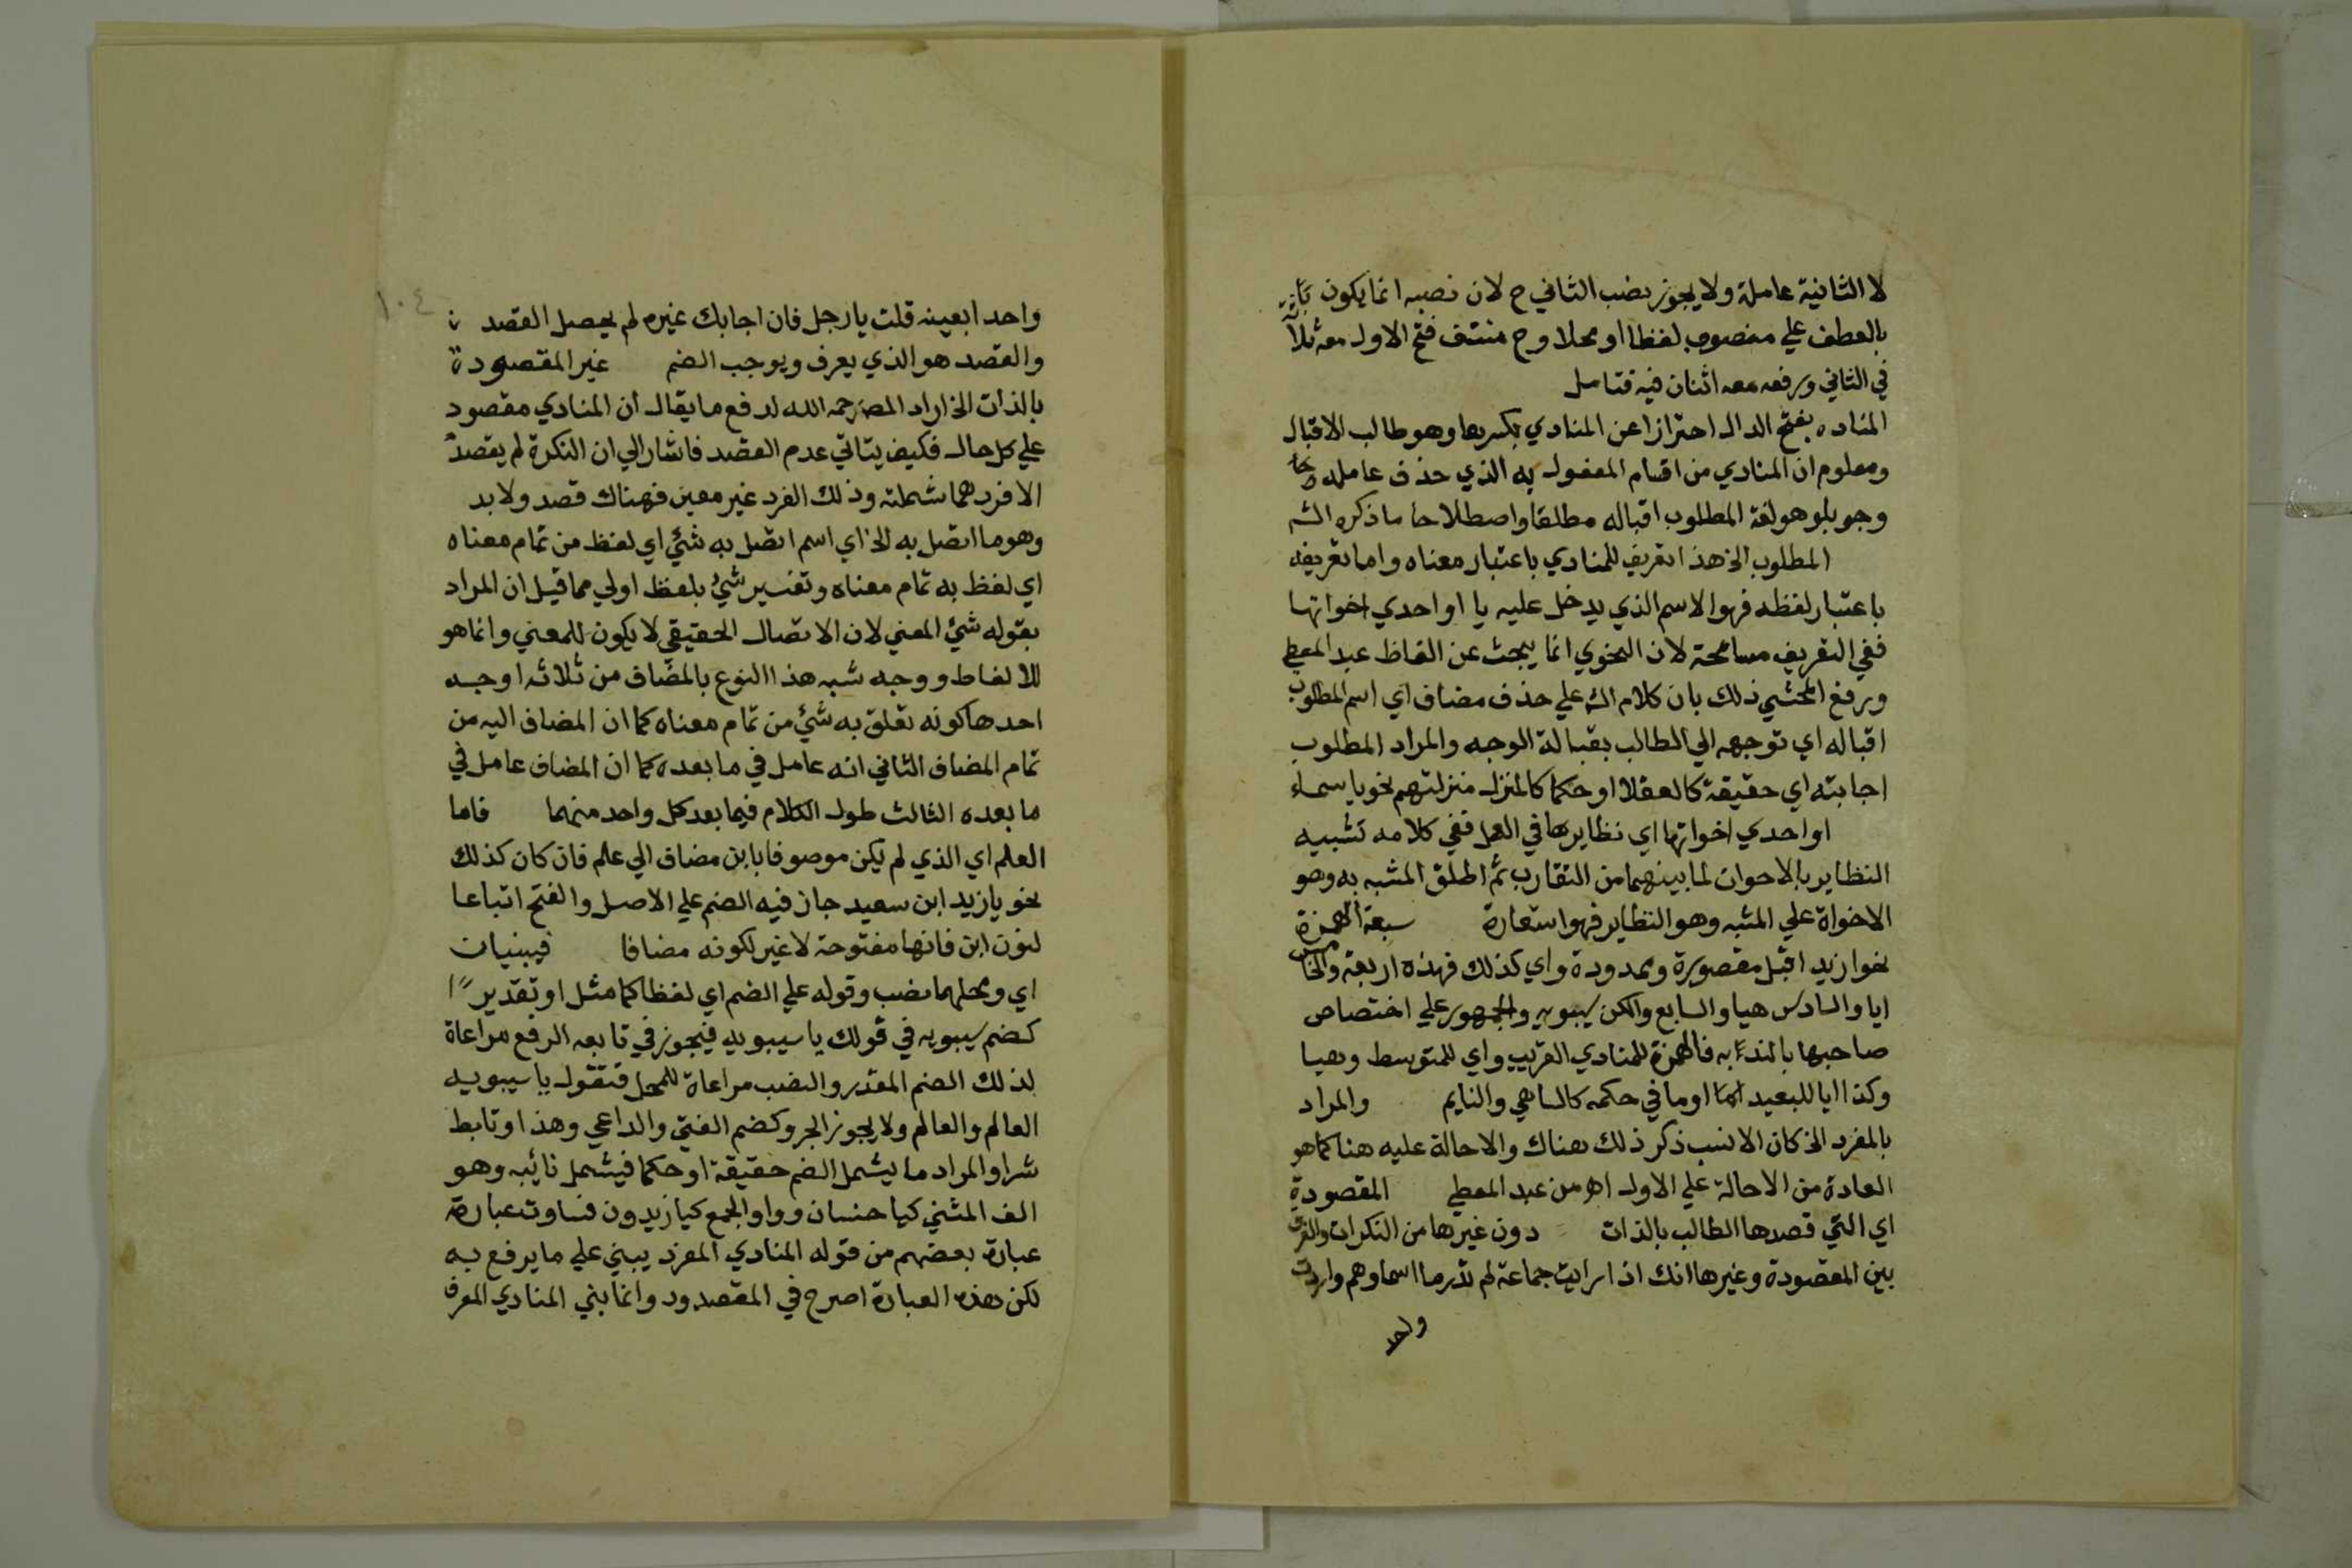 لا الثانية عاملة ولا يجوز نصب الثاني ح لان نصبه انما يكون
بالعطف علي منصوب لفظا او محلا وح منتف فتح الاول معه ثلاثة
في الثاني ورفعه معه اثنان فيه فتامل
المناده بفتح الدال احترازا عن المنادي بكسرها وهو طالب الاقبال
ومعلوم ان المنادي من اقسام المفعول به الذي حذف عامله
وجوبا وهو لغة المطلوب اقباله مطلقا واصطلاحا ما ذكره الشـ
المطلوب الخ هذا تعريف للمنادي باعتبار معناه واما تعريفه
باعتبار لفظه فهو الاسم الذي يدخل عليه يا او احدي اخواتها
ففي التعريف مسامحة لان النحوي انما يبحث عن الفاظ عبد المعطي
ورفع المحشي ذلك بان كلام الشـ علي حذف مضاف اي اسم المطلوب
اقباله اي توجهه الي الطالب بقبالة الوجه والمراد المطلوب
اجابته اي حقيقة كالعقلا او حكما كالمنزل منزلتهم نحو يا سماء
او احدي اخواتها اي نظايرها في العمل ففي كلامه تشبيه
النظاير بالاخوان لما بينهما من التقارب ثم اطلق المشبه به وهو
الاخواة علي المشبه وهو النظاير فهو استعارة سبعة الهمزة
نحو ازيد اقبل مقصورة وممدودة واي كذلك فهذه اربعة والخامس
ايا والسادس هيا والسابع والكن سيبويه والجمهور علي اختصاص
صاحبها بالنداء به فالهمزة للمنادي القريب واي للمتوسط وهيا
وكذا ايا للبعيد اما او ما في حكمه كالساهي والنايم والمراد
بالمفرد الخ كان الانسب ذكر ذلك هناك والاحالة عليه هنا كما هو
العادة من الاحالة علي الاول اهـ من عبد المعطي المقصودة
اي التي قصدها الطالب بالذات دون غيرها من النكرات والفرق
بين المقصودة وغيرها انك اذا رايت جماعة لم تدر ما اسماوهم واردت
واحد
١٠٤
واحدا بعينه قلت يا رجل فان اجابك غيره لم يحصل القصد
والقصد هو الذي يعرف ويوجب الضم غير المقصودة
بالذات الخ اراد المصـ رحمه الله لدفع ما يقال ان المنادي مقصود
علي كل حال فكيف يتاتي عدم القصد فاشار الي ان النكرة لم يقصد
الا فرد مما شملته وذلك الفرد غير معين فهناك قصد ولا بد
وهو ما اتصل به الخ اي اسم اتصل به شيء اي لفظ من تمام معناه
اي لفظ به تمام معناه وتفسير شيء بلفظ اولي مما قيل ان المراد
بقوله شيء المعني لان الاتصال الحقيقي لا يكون للمعني وانما هو
للالفاط ووجه شبه هذا النوع بالمضاف من ثلاثه اوجه
احدها كونه تعلق به شيء من تمام معناه كما ان المضاف اليه من
تمام المضاف الثاني انه عامل في ما بعده كما ان المضاف عامل في
ما بعده الثالث طول الكلام فيما بعد كل واحد منهما فاما
العلم اي الذي لم يكن موصوفا بابن مضاف الي علم فان كان كذلك
نحو يا زيد ابن سعيد جاز فيه الضم علي الاصل والفتح اتباعا
لنون ابن فانها مفتوحة لا غير لكونه مضافا فيبنيان
اي ومحلهما نصب وقوله علي الضم اي لفظا كما مثل او تقديرا
كضم سيبويه في قولك يا سيبويه فيجوز في تابعه الرفع مراعاة
لذلك الضم المقدر والنصب مراعاة للمحل فتقول يا سيبويه
العالم والعالم ولا يجوز الجر وكضم الفتي والداعي وهذا وتابط
شرا والمراد ما يشمل الضم حقيقة او حكما فيشمل نائبه وهو
الف المثني كيا حنسان وواو الجمع كيا زيدون فساوت عبارة
عبارة بعضهم من قوله المنادي المفرد يبني علي ما يرفع به
لكن هذه العبارة اصرح في المقصدود وانما بني المنادي المعرف